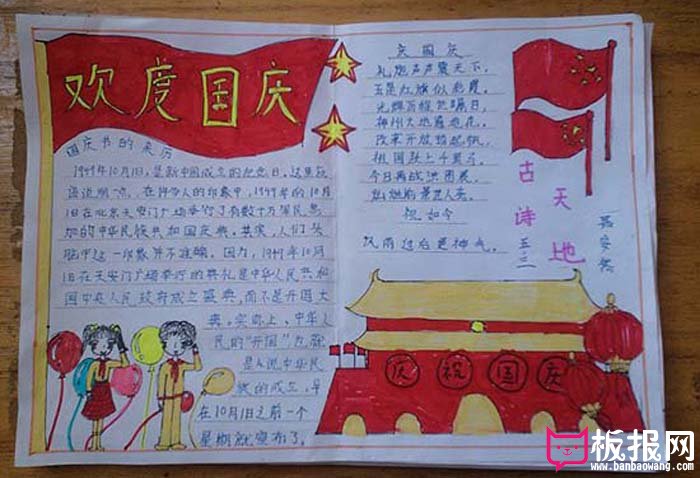 欢度国庆
国庆节的来历
1949年10月1日,是新中国成立的纪念日。这里应
该说明一点,在许多人的印象中,1949年的10月
1日在北京天安门广场举行了有数十万军民参
加的中华民族共和国庆典。其实,人们头
脑中这一印象并不准确。因为,1949年10月
1日在天安门广场举行的典礼是中华人民共和
国中央人民政府成立盛典,而不是开国大
典。实际上,中华人
民的"开国"
是说中华民
族的成立,早
在10月1日之前一个
星期就宣布了。
庆国庆
礼炮声声震天下,
五星红旗似彩霞。
光辉历程
神州大地遍地花。
改革开放
祖国跃上千里马。
今日再战洪图展,
祝如今
风雨过后更神气。
古诗
天地
五三
庆祝国庆
板报网
www.banbaowang.com